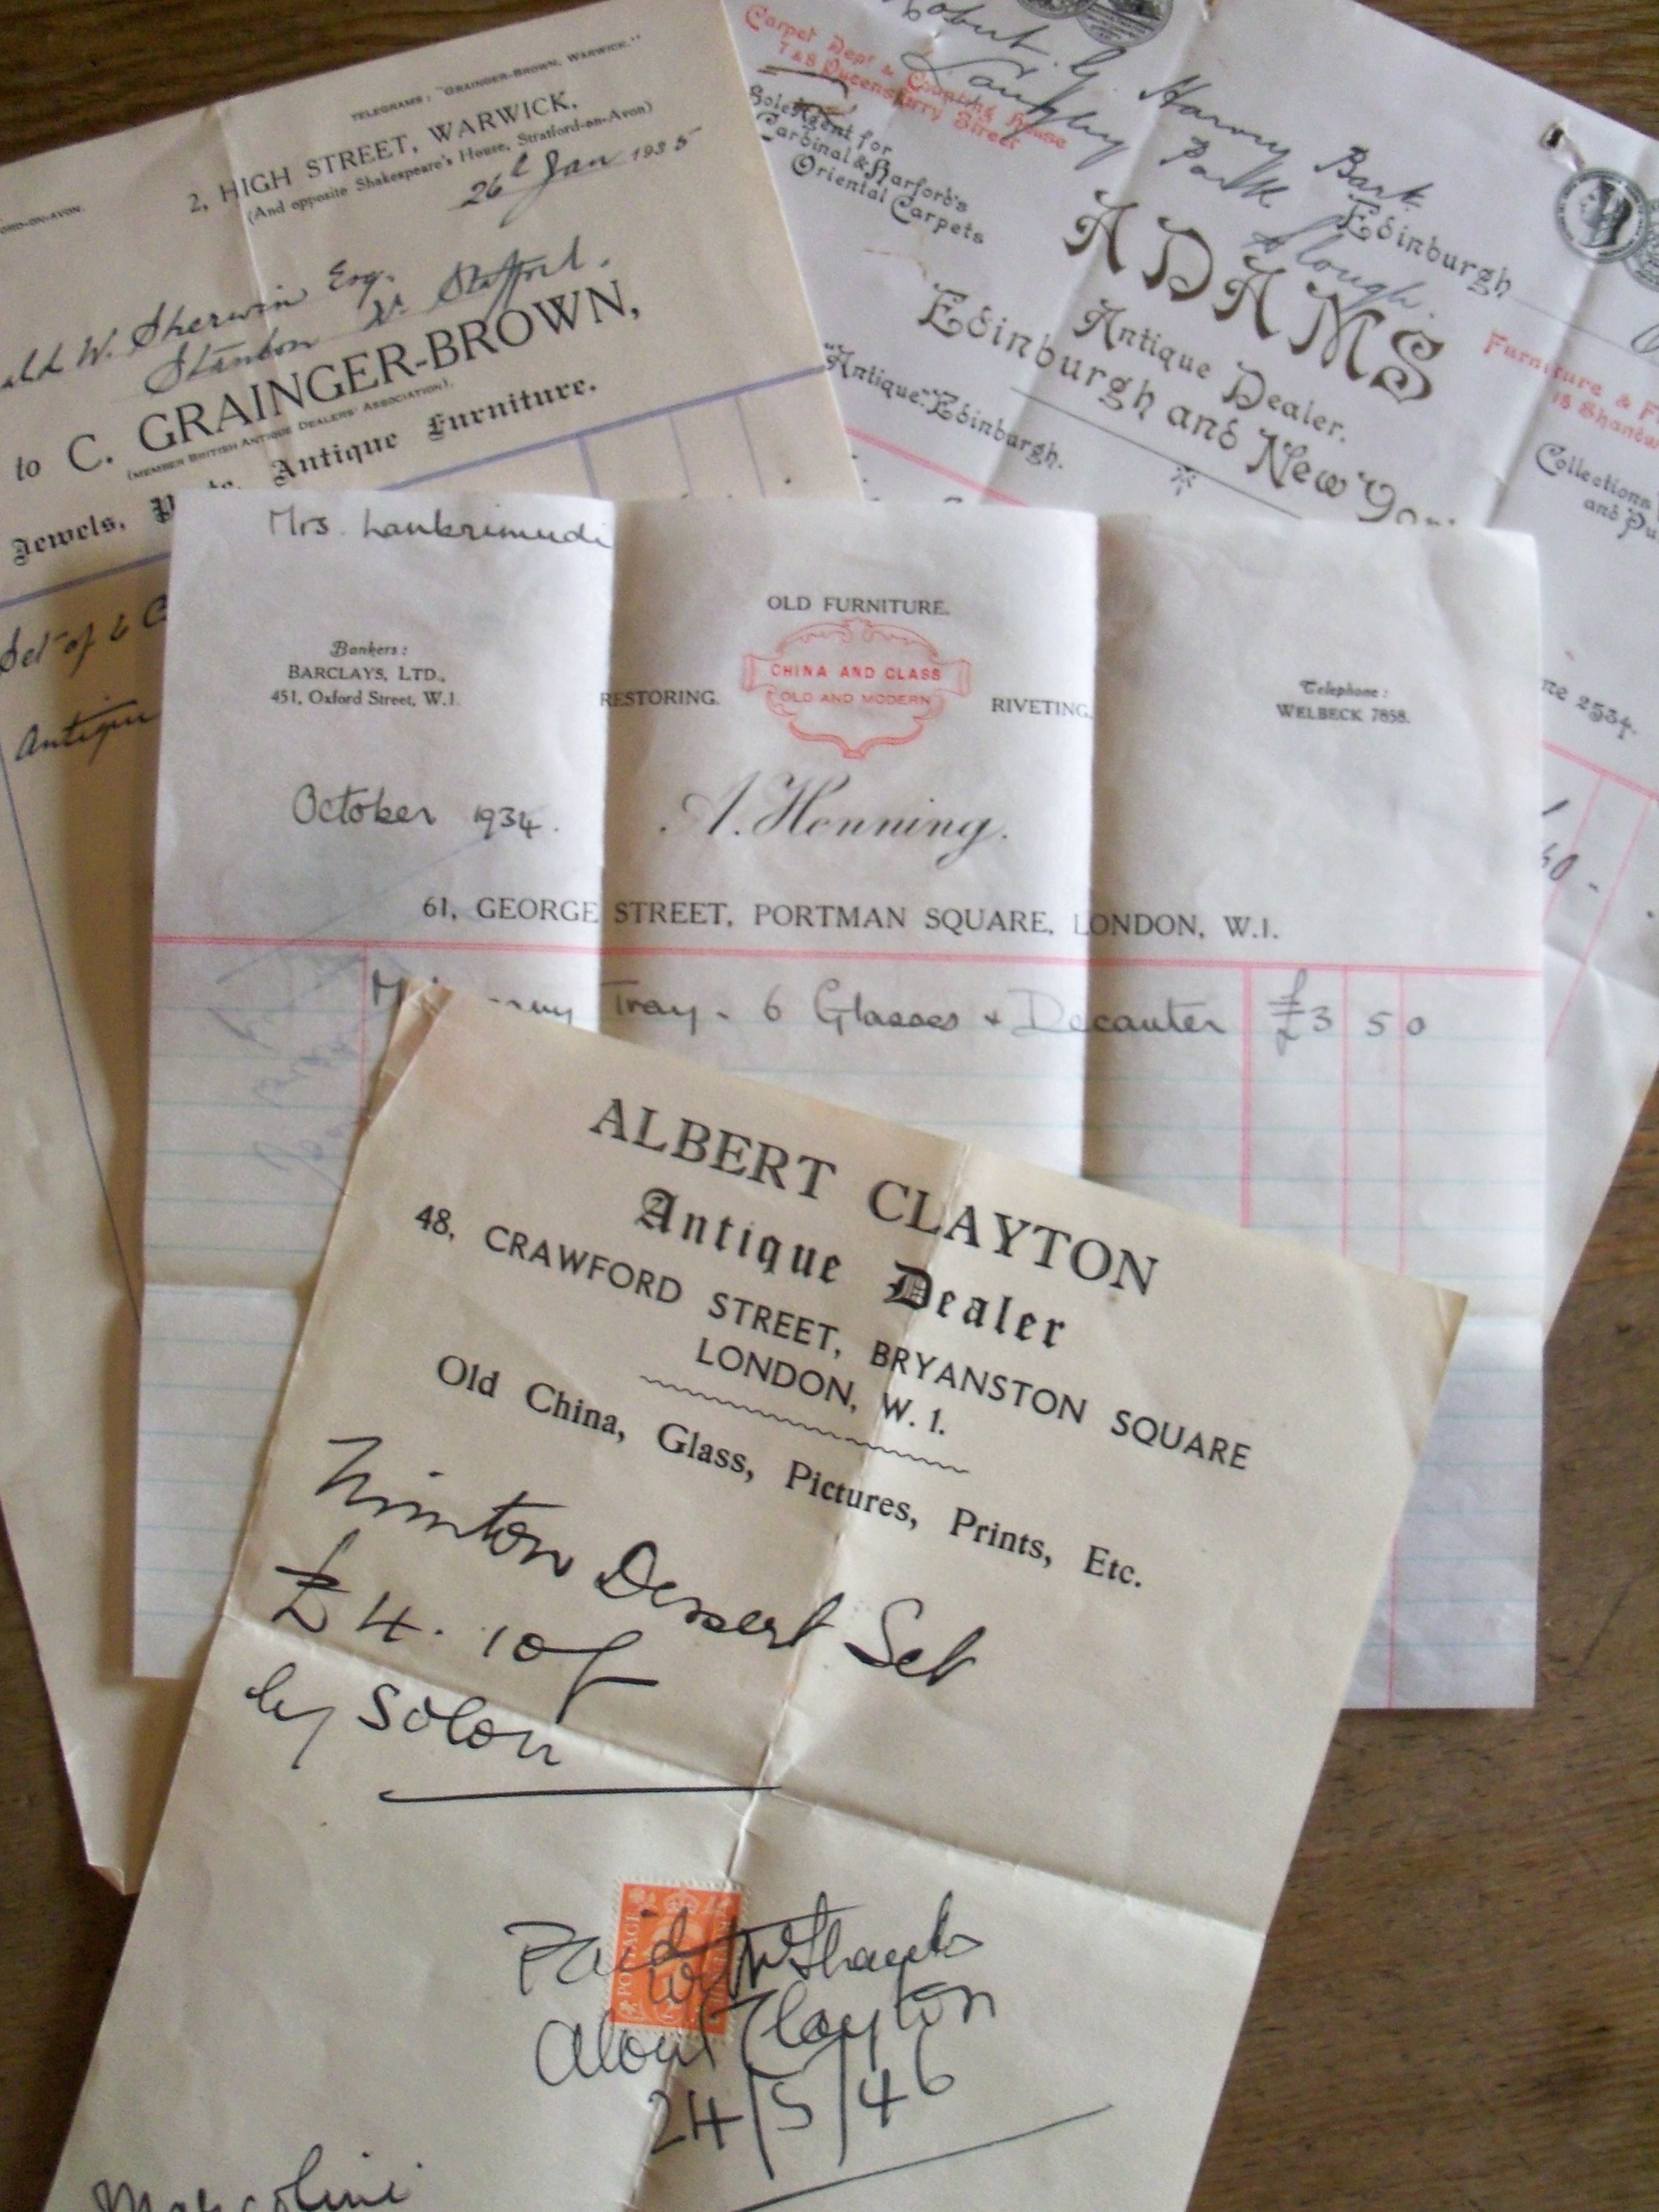 TELEGRAMS: "GRAINGER-BROWN, WARWICK."
2, HIGH STREET, WARWICK,
(And opposite Shakespeare's House, Stratford-on-Avon)
26 Jan 1935
W. Sherwin Esq.
Nr Stafford.
to C. GRAINGER-BROWN,
(MEMBER BRITISH ANTIQUE DEALERS' ASSOCIATION).
Jewels, Antique Furniture.
Set of 6
Robert G Harvey Bart
Langley Park
Slough.
Carpet Dept & Counting House
7 & 8 Queensberry Street
Sole Agent for
Cardinal & Harford's
Oriental Carpets
Edinburgh
ADAMS
Antique Dealer.
Edinburgh and New
"Antique." Edinburgh.
Furniture &
Collections
and
2534.
Mrs.
OLD FURNITURE.
CHINA AND GLASS
OLD AND MODERN
RESTORING.
RIVETING.
Bankers:
BARCLAYS, LTD.,
451, Oxford Street, W.1.
Telephone:
WELBECK 7858.
October 1934.
A. Henning.
61, GEORGE STREET, PORTMAN SQUARE, LONDON, W.1.
Tray - 6 Glasses + Decanter £3 5 0
ALBERT CLAYTON
Antique Dealer
48, CRAWFORD STREET, BRYANSTON SQUARE
LONDON, W. 1.
Old China, Glass, Pictures, Prints, Etc.
Minton Dessert Set
£4. 10/
by Solon
POSTAGE
Paid with Thanks
Clayton
24/5/46
Marcolini